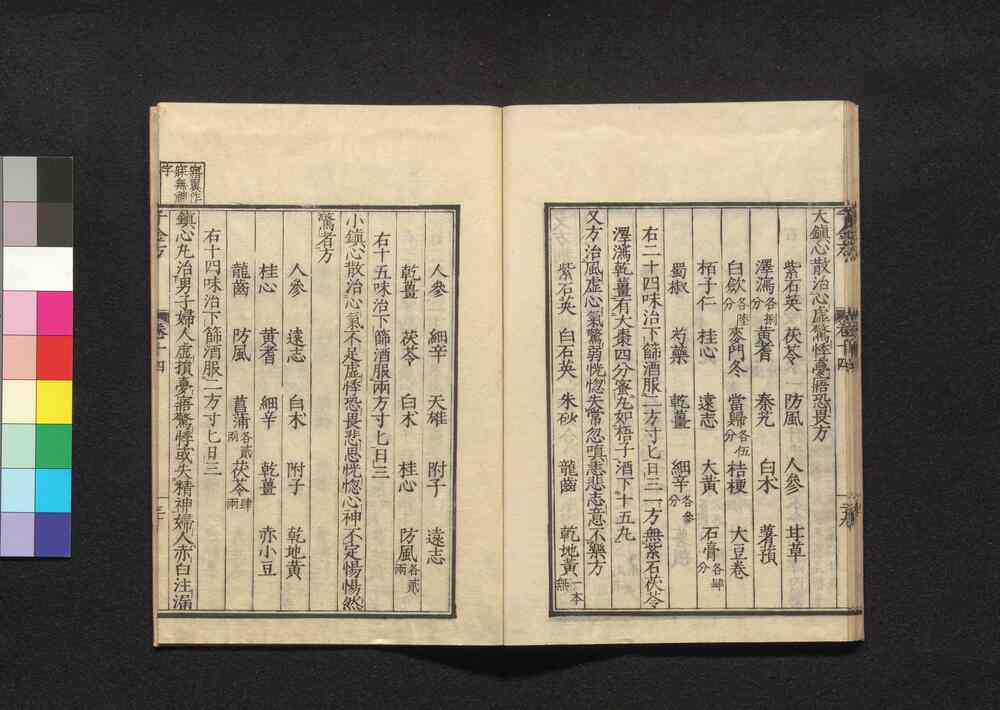 大鎮心散治心虛驚悸憂寤恐畏方
紫石英 茯苓 防風 人參 甘草
澤瀉各捌分 黃耆 秦艽 白朮 薯蕷
白歛各陸分 麥門冬 當歸各伍分 桔梗 大豆卷
栢子仁 桂心 遠志 大黃 石膏各肆分
蜀椒 芍藥 乾薑 細辛各參分
右二十四味治下篩酒服二方寸匕日三一方無紫石茯苓
澤瀉乾薑有大棗四分蜜丸如梧子酒下十五丸
又方治風虛心氣驚弱恍惚失常忽嗔恚悲志意不樂方
紫石英 白石英 朱砂 龍齒 乾地黃一本無
人參 細辛 天雄 附子 遠志
乾薑 茯苓 白朮 桂心 防風各貳兩
右十五味治下篩酒服兩方寸匕日三
小鎮心散治心氣不足虛悸恐畏悲思恍惚心神不定惕惕然
驚者方
人參 遠志 白朮 附子 乾地黃
桂心 黃耆 細辛 乾薑 赤小豆
龍齒 防風 菖蒲各貳兩 茯苓肆兩
右十四味治下篩酒服二方寸匕日三
鎮心丸治男子婦人虛損憂寤驚悸或失精神婦人赤白注漏
千金方 卷十四